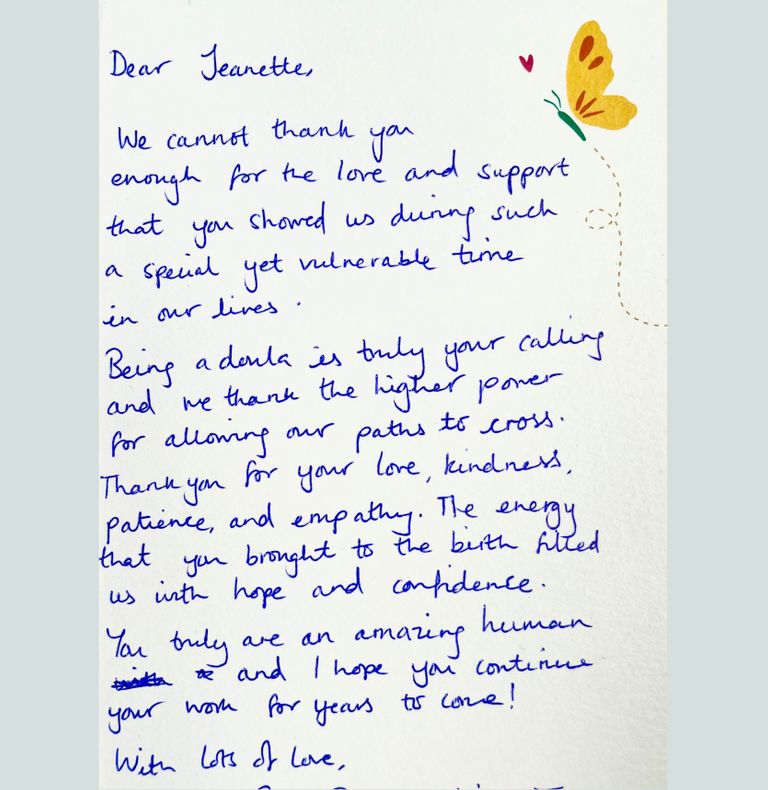 Dear Jeanette,
We cannot thank you
enough for the love and support
that you showed us during such
a special yet vulnerable time
in our lives.
Being a doula is truly your calling
and we thank the higher power
for allowing our paths to cross.
Thank you for your love, kindness,
patience, and empathy. The energy
that you brought to the birth filled
us with hope and confidence.
You truly are an amazing human
and I hope you continue
your work for years to come!
With lots of love,